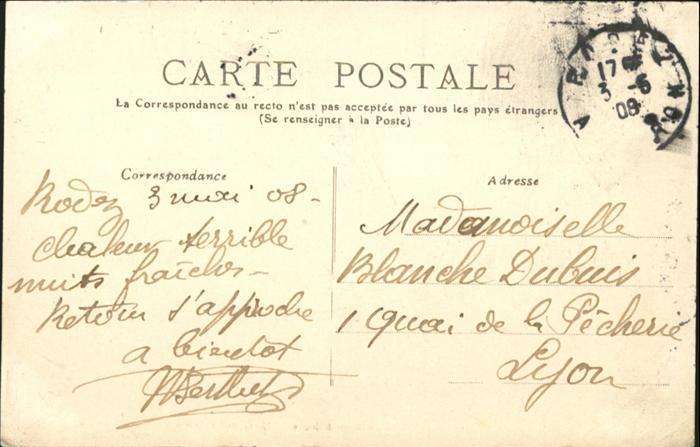 CARTE POSTALE
La Correspondance au recto n'est pas acceptée par tous les pays étrangers
(Se renseigner à la Poste)
Correspondance
Rodez 3 mai 08-
chaleur terrible
nuits fraîches-
Retour s'approche
a bientot
Adresse
Mademoiselle
Blanche Dubuis
1 Quai de la Pêcherie
Lyon
17
3 -6
08